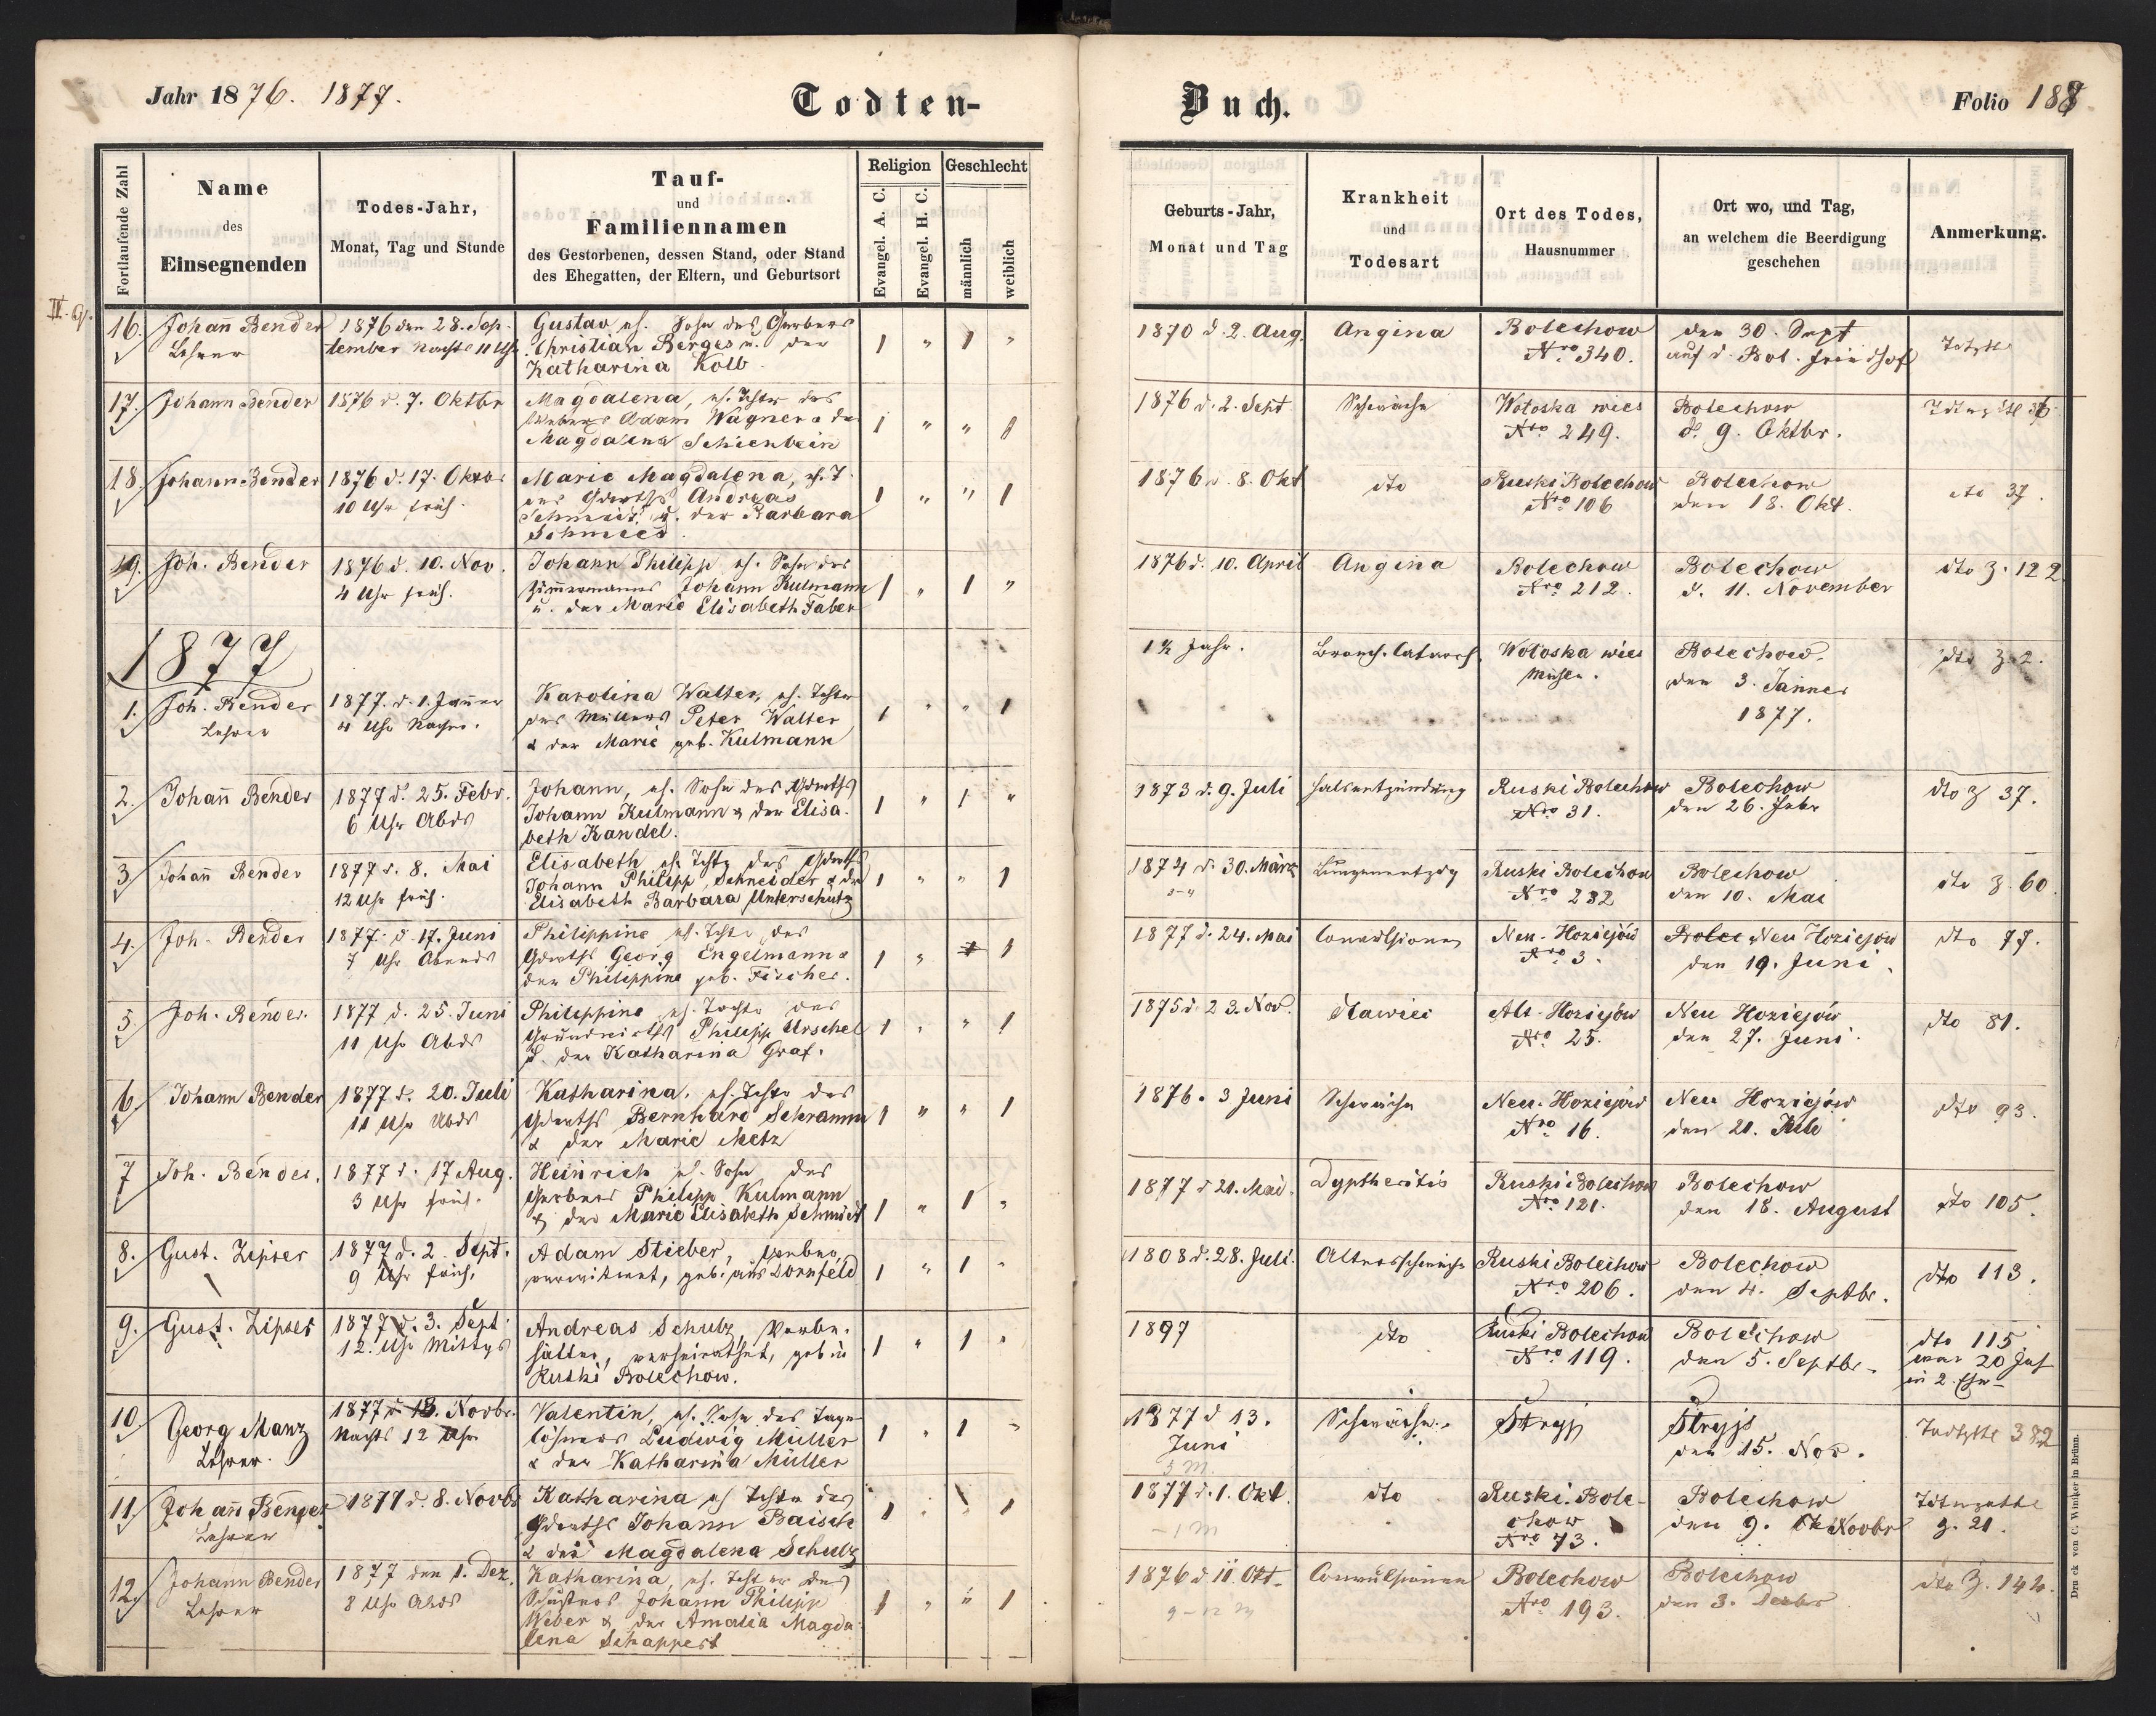 Jahr 1876. 1877.
Todten-
Buch.
Folio 188
Fortlaufende Zahl
Name
des
Einsegnenden
Todes-Jahr,
Monat, Tag und Stunde
Tauf-
und
Familiennamen
des Gestorbenen, dessen Stand, oder Stand
des Ehegatten, der Eltern, und Geburtsort
Religion
Evangel. A. C.
Evangel. H. C.
Geschlecht
männlich
weiblich
Geburts-Jahr,
Monat und Tag
Krankheit
und
Todesart
Ort des Todes,
Hausnummer
Ort wo, und Tag,
an welchem die Beerdigung
geschehen
Anmerkung.
16. Johann Bender 1876 den 28. Sep- Gustav eh. Sohn des Gerbers 1870 d. 2. Aug. Angina Bolechow den 30. Sept
Lehrer tember Nachts 11 Uhr Christian Berges u. der 1 " 1 " Nro 340. auf d. Bol. Friedhof
Katharina Kolb
17. Johann Bender 1876 d. 7. Oktbr Magdalena, eh. Tchtr des 1876 d. 2. Sept Schwäche Wotoska wies Bolechow
Webers Adam Wagner & der 1 " " 1 Nro 249. d. 9. Oktbr. 36
Magdalena Schienbein
18. Johann Bender 1876 d. 17. Oktbr Marie Magdalena, eh. T. 1876 d. 8. Okt dto Ruski Bolechow Bolechow dto 37.
10 Uhr früh. des Grdwths Andreas 1 " " 1 Nro 106 den 18. Okt.
Schmidt u. der Barbara
Schmied
19. Joh. Bender 1876 d. 10. Nov. Johann Philipp eh. Sohn des 1876 d. 10. April Angina Bolechow Bolechow dto Z. 122
4 Uhr früh. Zimmermanns Johann Kulmann 1 " 1 " Nro 212. d. 11. November
u. der Marie Elisabeth Faber
1877
1. Joh. Bender 1877. d. 1. Jänner Karolina Walter, eh. Tchtr 1½ Jahr. Bronch. Catarrh Wotoska wies Bolechow. dto Z. 2.
Lehrer 4 Uhr Nachm. des Müllers Peter Walter 1 " " 1 Mühle. den 3. Jänner
& der Marie geb. Kulmann 1877.
2. Johann Bender 1877 d. 25. Febr. Johann, eh. Sohn des Grdwths 1873 d. 9. Juli Halsentzündung Ruski Bolechow Bolechow dto Z 37.
6 Uhr Abds Johann Kulmann & der Elisa- 1 " 1 " Nro 31. den 26. Febr
beth Kandel.
3. Johann Bender 1877 d. 8. Mai Elisabeth eh. Tchtr des Grdwths 1874 d. 30. März Lungenentzdg Ruski Bolechow Bolechow dto Z. 60.
12 Uhr früh. Johann Philipp Schneider & der 1 " " 1 Nro 232 den 10. Mai
Elisabeth Barbara Unterschutz
4. Joh. Bender 1877. d. 17. Juni Philippine eh. Tchtr des 1877 d. 24. Mai Convulsionen Neu-Hoziejów Neu Hoziejów dto 77.
7 Uhr Abends Grdwths Georg Engelmann & 1 " 1 Nro 3. den 19. Juni.
der Philippine geb. Fischer.
5. Joh. Bender. 1877 d. 25. Juni Philippine eh. Tochtr des 1875 d. 23. Nov. Alt-Hoziejów Neu Hoziejów dto 81.
11 Uhr Abds Grundwirths Philipp Urschel 1 " " 1 Nro 25. den 27. Juni.
u. der Katharina Graf.
6. Johann Bender 1877 d. 20. Juli Katharina, eh. Tchtr des 1876. 3 Juni Schwäche Neu-Hoziejów Neu Hoziejów dto 93.
11 Uhr Abds Grdwths Bernhard Schramm 1 " " 1 Nro 16. den 21. Juli
& der Marie Metz
7 Joh. Bender. 1877 d. 17 Aug. Heinrich eh. Sohn des 1877 d 21. Mai. Dyptheritis Ruski Bolechow Bolechow dto 105.
3 Uhr früh. Gerbers Philipp Kulmann 1 " 1 " Nro 121. den 18. August
& der Marie Elisabeth Schmidt
8. Gust. Zipser 1877 d. 2. Sept. Adam Stieber, Gerber, 1808 d. 28. Juli. Altersschwäche Ruski Bolechow Bolechow dto 113.
9 Uhr früh. verwitwet, geb. aus Dornfeld 1 " 1 " Nro 206. den 4. Septbr.
9. Gust. Zipser 1877 d. 3. Sept. Andreas Schulz, 1897 dto Ruski Bolechow Bolechow dto 115
12. Uhr Mittgs verheirathet, geb in 1 " 1 " Nro 119. den 5. Septbr. war 20 Jah
Ruski Bolechow. in 2. Ehe
10 Georg Manz 1877 d 13. Novbr. Valentin, eh. Sohn des Tage- 1877 d 13. Schwäche. Stryj Stryj 382
Lehrer. Nachts 12 Uhr löhners Ludwig Müller 1 " 1 " Juni den 15. Nov.
& der Katharina Müller 5 M.
11. Johann Bender 1877 d. 8. Novbr Katharina eh Tchtr des 1877 d. 1. Okt. dto Ruski Bole- Bolechow
Lehrer Grdwths Johann Baisch 1 " " 1 - 1 M chow den 9. Novbr Z. 21.
& der Magdalena Schulz Nro 73.
12. Johann Bender 1877 den 1. Dez. Katharina, eh. Tchtr des 1876 d. 11. Okt. Convulsionen Bolechow Bolechow dto Z. 142.
Lehrer 8 Uhr Abds Schusters Johann Philipp 1 " " 1 Nro 193. den 3. Dezbr
Weber & der Amalia Magda-
lena Schappert
Druck von C. Winiker in Brünn.